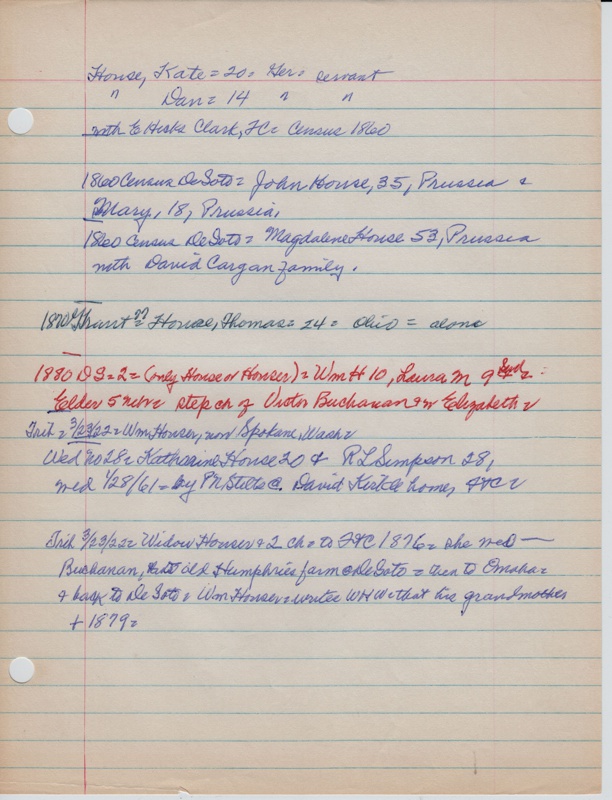 House, Kate = 20 = Ger = servant
" Dan = 14 " "
with E Hicks Clark, FC = Census 1860
1860 Census DeSoto = John House, 35, Prussia &
Mary, 18, Prussia.
1860 Census DeSoto = Magdalene House 53, Prussia
with David Cargan family.
1870 Grant ?? = House, Thomas = 24 = Ohio = alone
1880 DS = 2 = (only House or Houser) = Wm H 10, Laura M 9
Elder 5 = step ch of Victor Buchanan & w Elizabeth =
Trib = 3/23/22 = Wm Houser, now Spokane, Wash =
Wed no 28 = Katharine House 20 & R L Simpson 28,
wed 1/28/61 = by PM @ David home,
Trib 3/23/22 = Widow Houser & 2 ch = to FtC 1876 = she wed —
Buchanan, old Humphries farm @ DeSoto = then to Omaha =
& back to De Soto = Wm Houser = writes WHW = that his grandmother
+ 1879 =